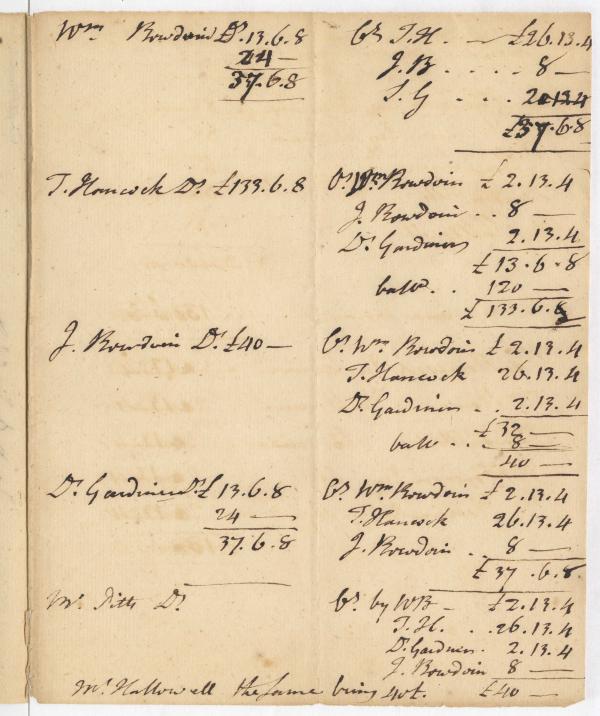 Wm Bowdoin Dr. 13.6.8 Cr T.H. — £26.13.4
24 — J.B .... 8 —
37.6.8 S.G ... 2.13.4
£37.6.8
T. Hancock Dr. £133.6.8 Cr. Wm Bowdoin £2.13.4
J. Bowdoin .. 8 —
Dr. Gardiners 2.13.4
£13.6.8
ballce .. 120 —
£133.6.8
J. Bowdoin Dr. £40 — Cr. Wm Bowdoin £2.13.4
T. Hancock 26.13.4
Dr. Gardiners .. 2.13.4
£32 —
ballce ... 8 —
40 —
Dr. Gardiner Dr £13.6.8 Cr. Wm Bowdoin £2.13.4
24 — T. Hancock 26.13.4
37.6.8 J. Bowdoin .. 8 —
£37.6.8
Mr. Pitts Dr. Cr. by WB — £2.13.4
T.H. .. 26.13.4
Dr. Gardiner . 2.13.4
J. Bowdoin 8 —
Mr. Hallowell the same being £40 —